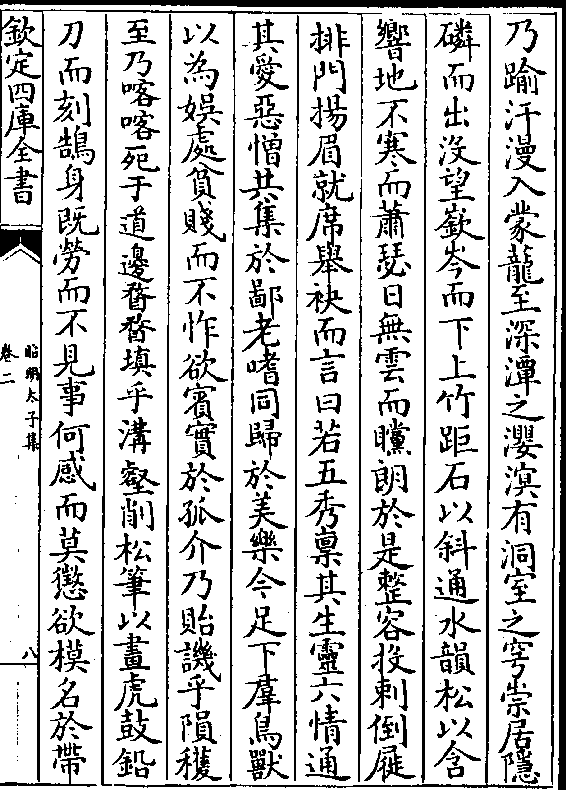 乃踰汗漫入蒙龍至深潭之濙溟有洞室之穹崇居隱
磷而出沒望嶔岑而下上竹距石以斜通水韻松以含
響地不寒而蕭瑟日無雲而曭朗於是整容投刺倒屣
排門揚眉就席舉袂而言曰若五秀稟其生靈六情通
其愛惡憎共集於鄙老嗜同歸於美樂今足下羣鳥獸
以為娛處貧賤而不怍欲賓實於孤介乃貽譏乎隕穫
至乃喀喀死于道邊瞀瞀填乎溝壑削松筆以畫虎鼓鉛
刀而刻鵠身既勞而不見事何感而莫懲欲模名於帶
欽定四庫全書
昭明太子集
卷二
八